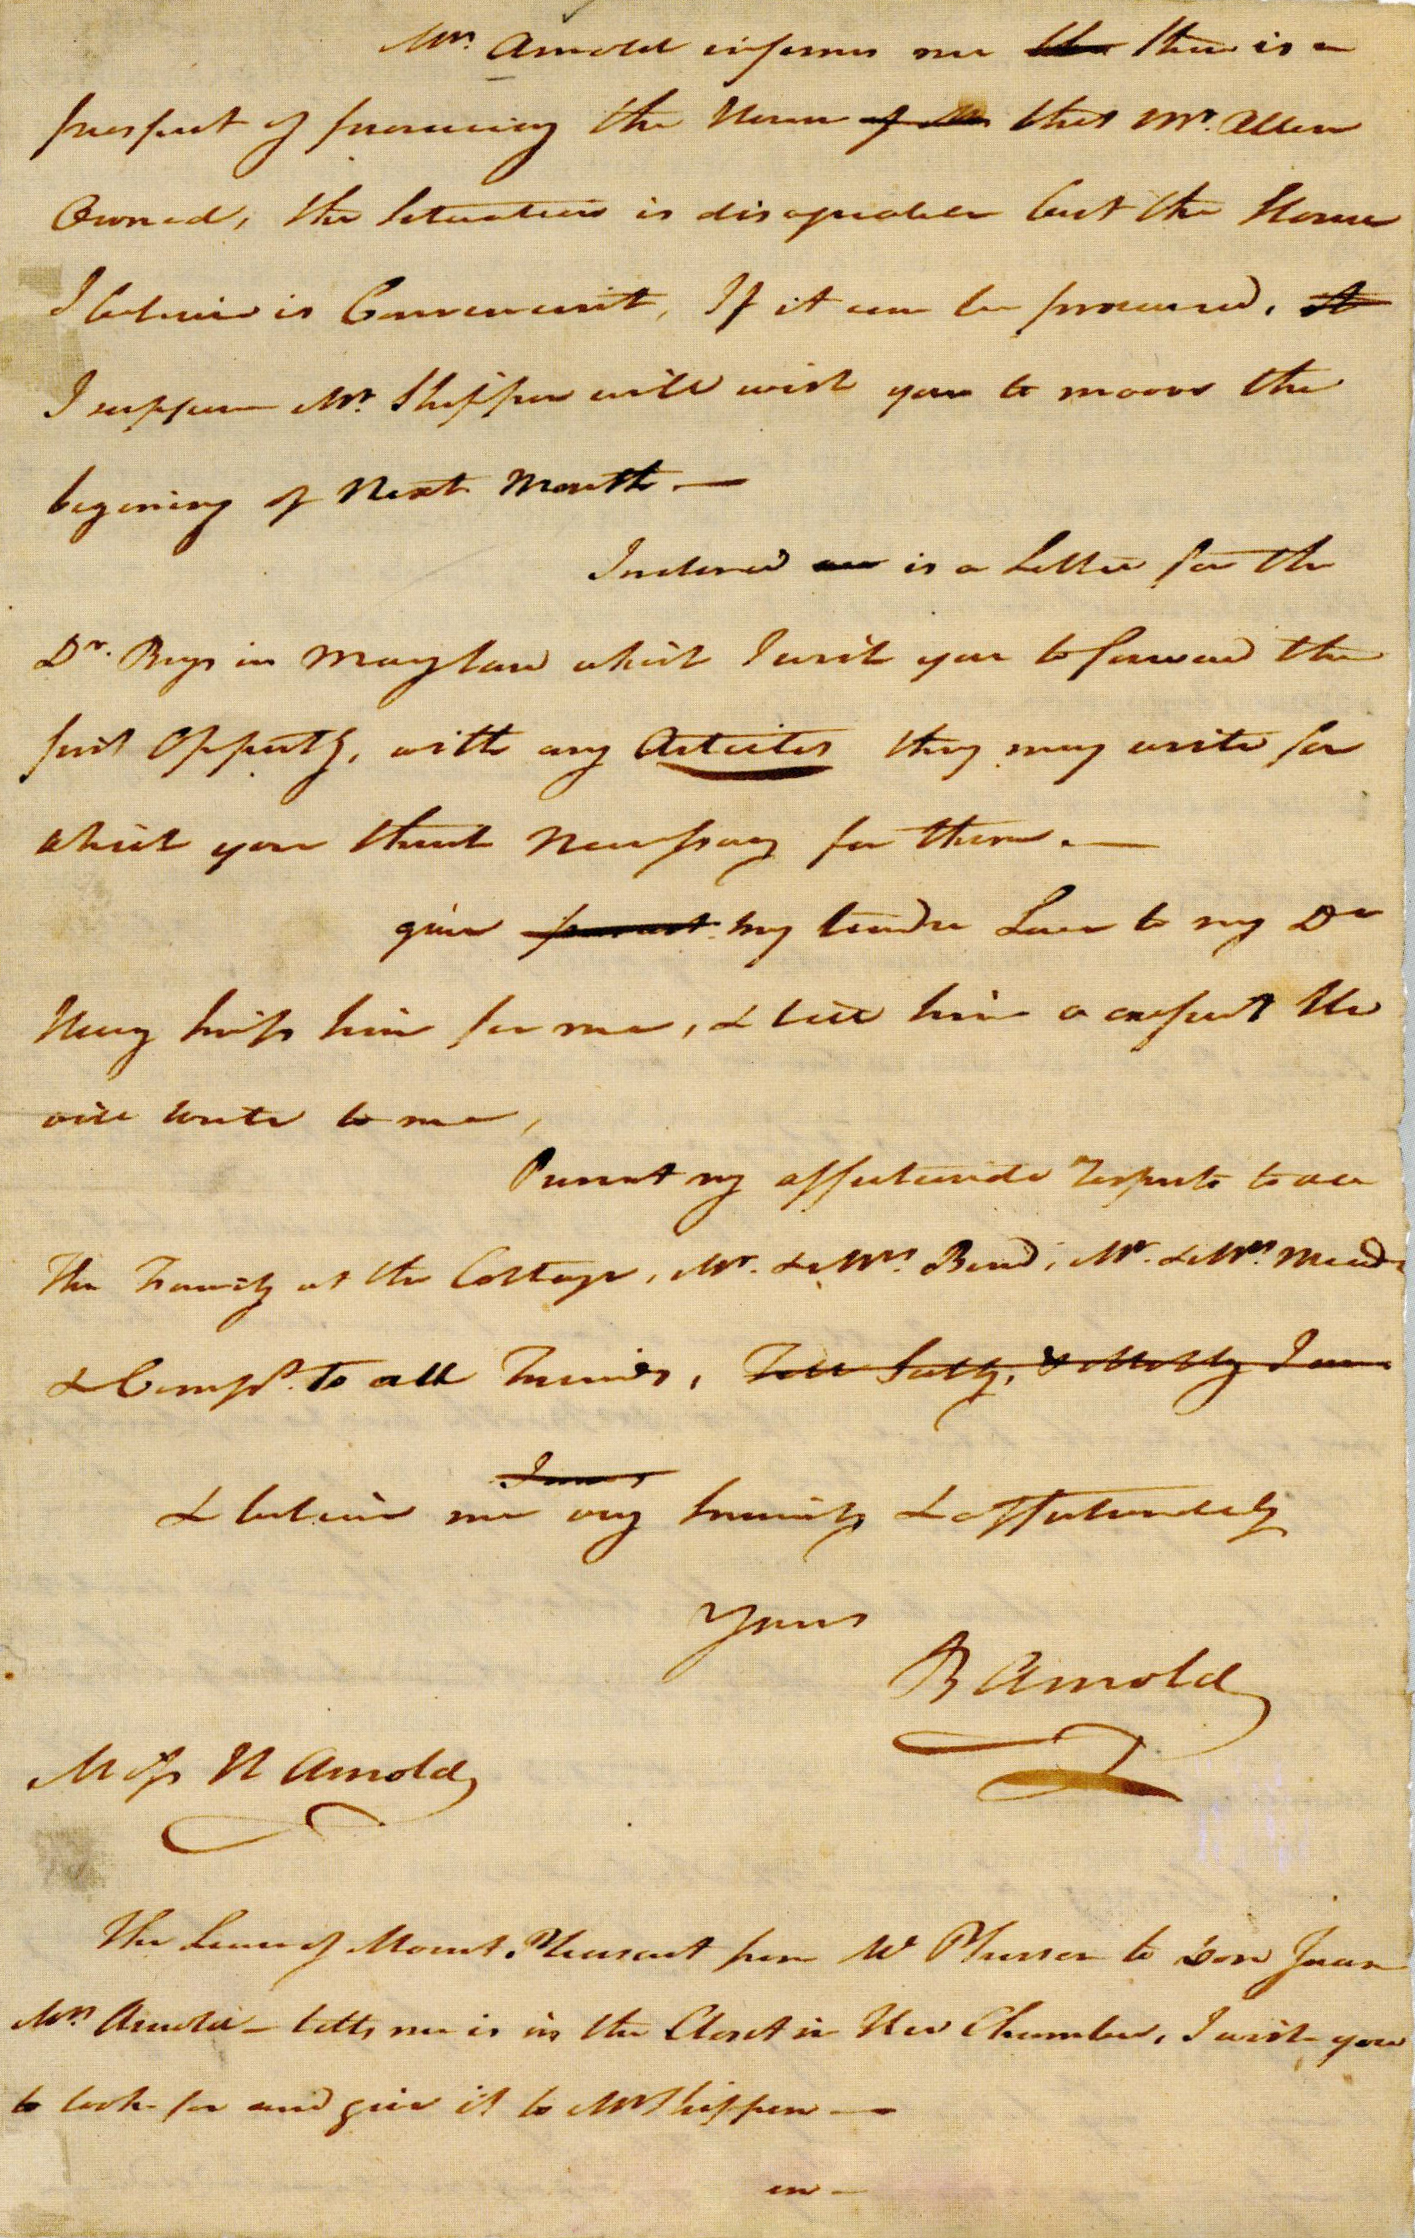 Mrs. Arnold informs me the there is a
prospect of procuring the House of Mr that Mr. Allen
Owned, the Situation is disagreable but the House
I beleive is Convenient, If it can be procured, it
I suppose Mr. Shippen will wish you to moove the
begining of Next Month. —
Inclosed are is a Letter for the
Dr. Boys in Maryland which I wish you to forward the
first Opperty, with any Articles they may write for
which you think Necessary for them. —
give my tender Love to my Dr
Henry kiss him for me, & tell him I expect He
will write to me,
Present my affectionate respects to all
The Family at the Cottage, Mr. & Mrs. Bond, Mr. & Mrs. Mead
& Compts. to all Friends, Tell Sally, & Molly I am
& beleive me very sincerely & affectionately
Yours
B Arnold
Miss H Arnold
The Lease of Mount Pleasant from Mr Plunson to Don Juan
Mrs Arnold – tells me is in the Closet in Her Chamber, I wish you
to look for and give it to Mr Shippen —